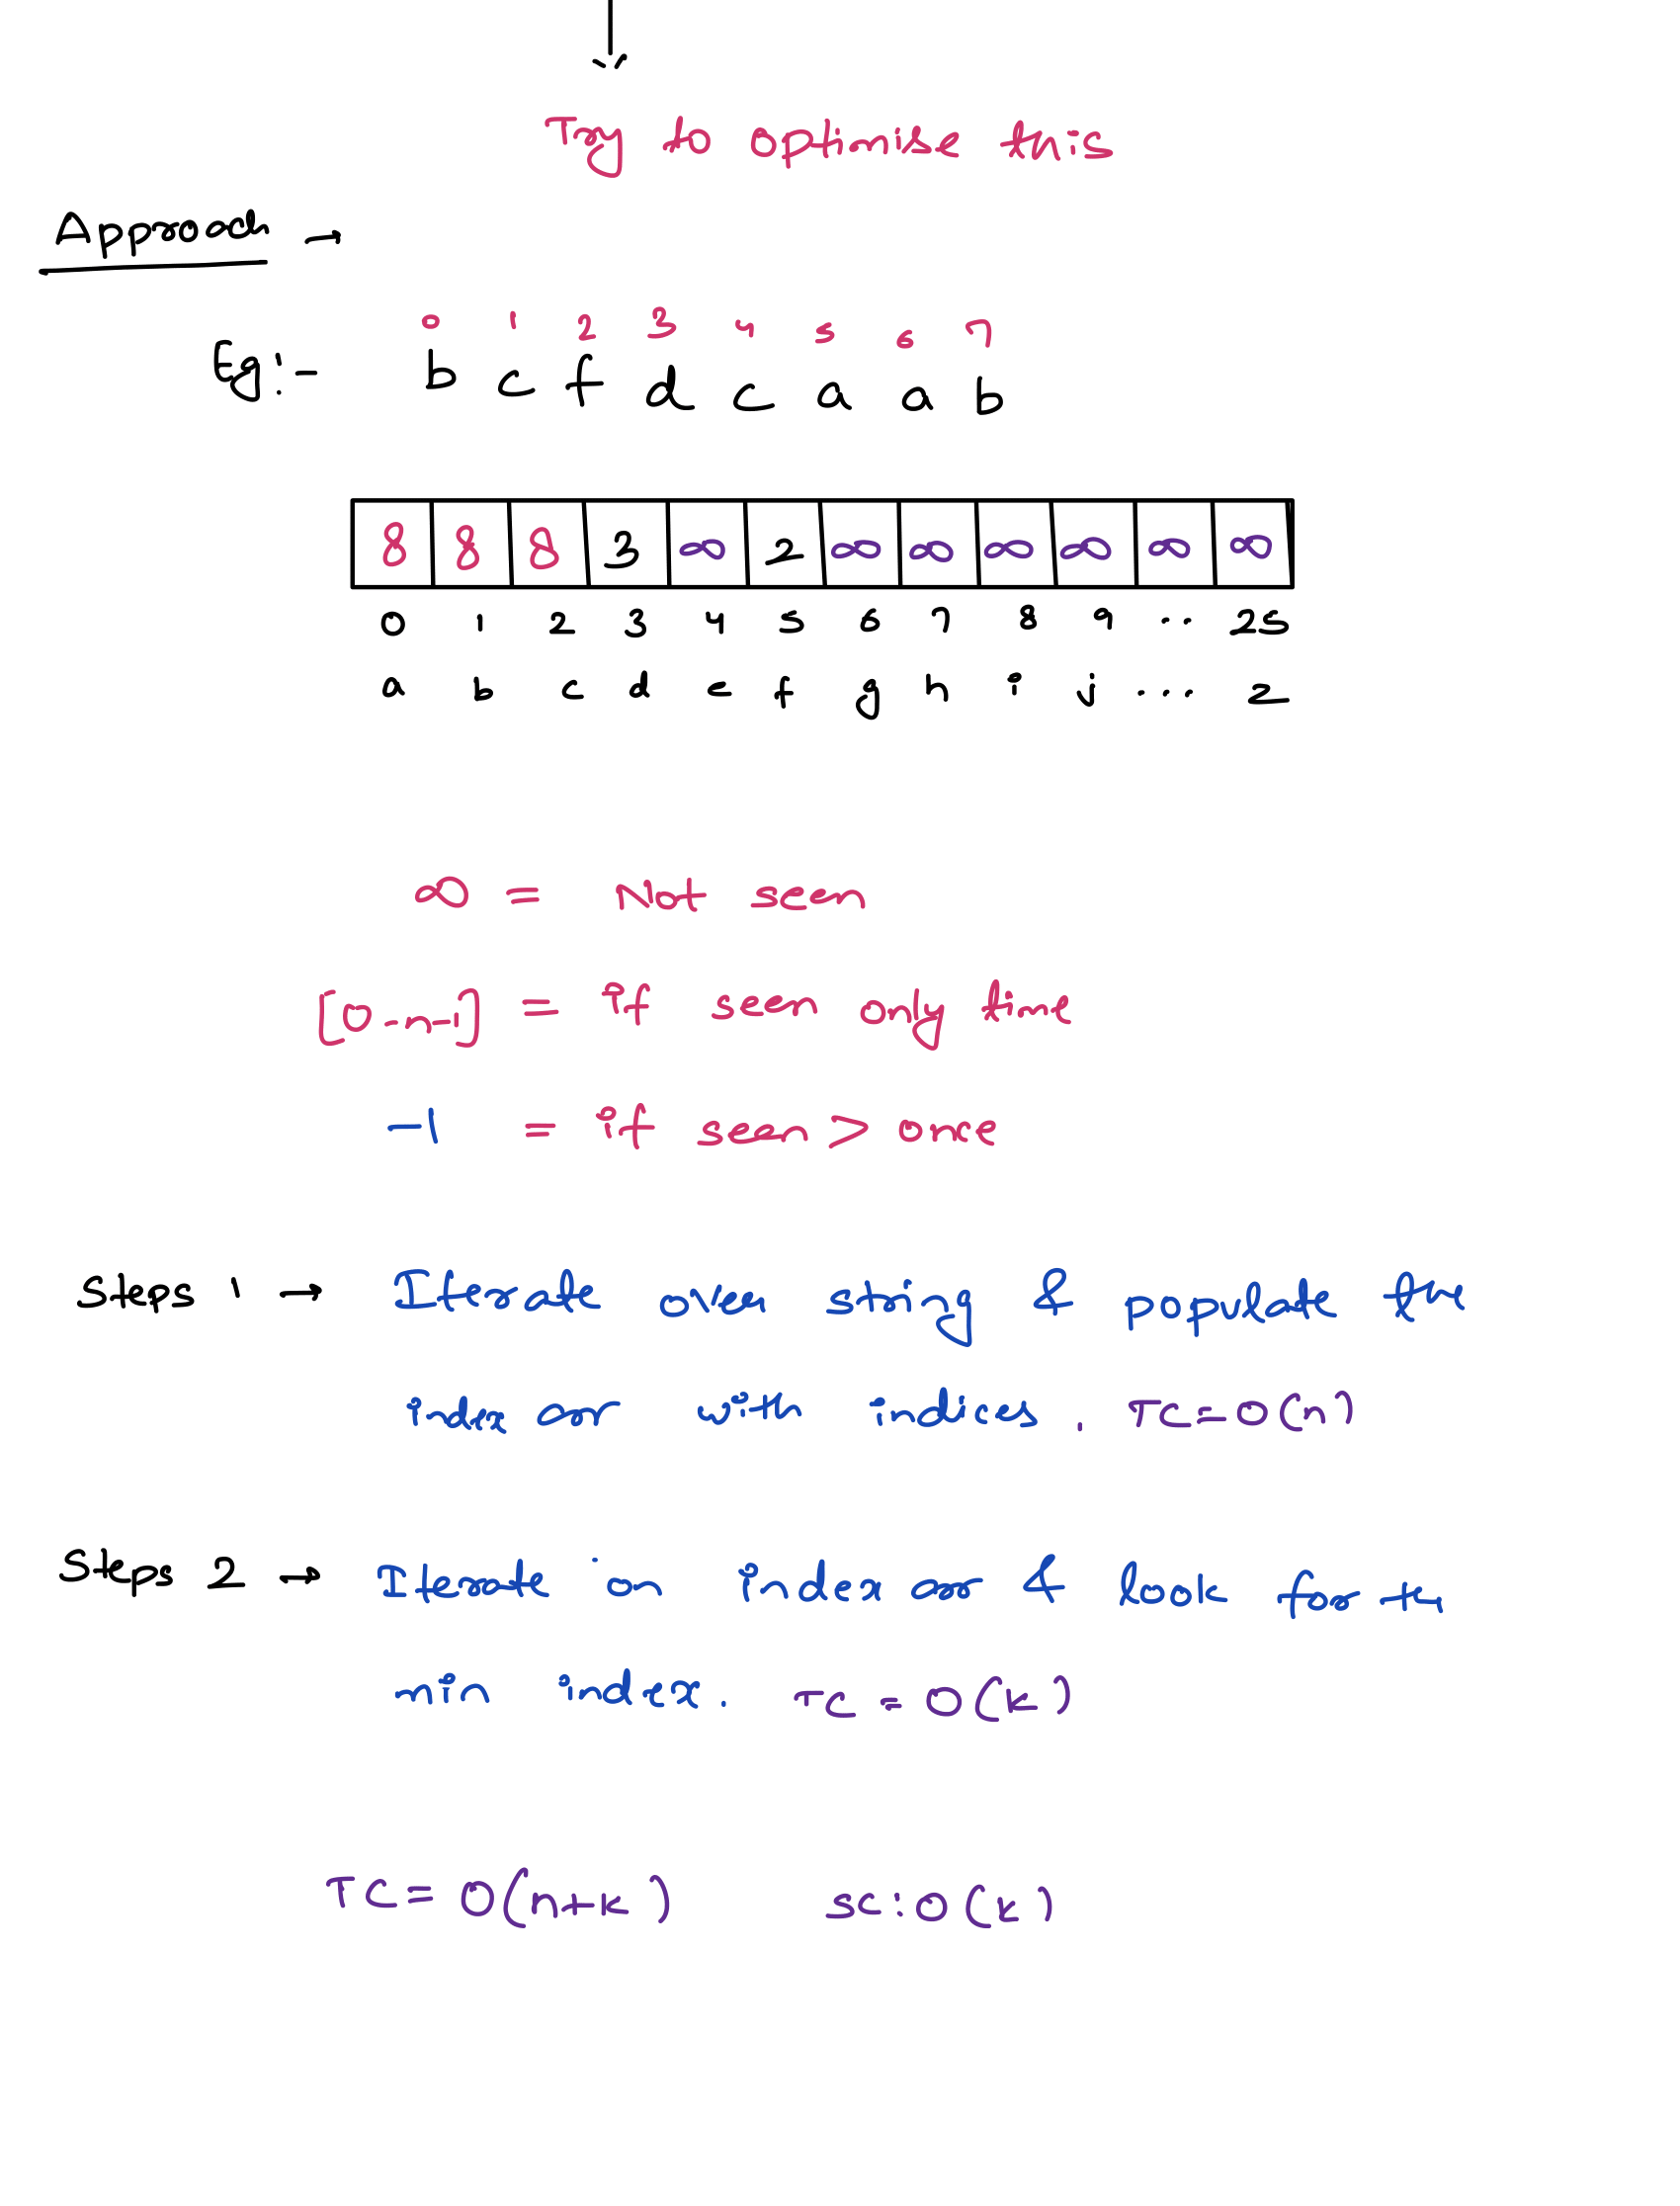 Try to optimise this
Approach -
0 1 2 3 4 5 6 7
Eg:- b c f d c a a b
8 8 8 3 ∞ 2 ∞ ∞ ∞ ∞ ∞ ∞
0 1 2 3 4 5 6 7 8 9 .. 25
a b c d e f g h i j ... z
∞ = Not seen
[0--n-1] = if seen only time
-1 = if seen > once
Steps 1 → Iterate over string & populate the
index arr with indices. TC=O(n)
Steps 2 → Iterate on index arr & look for the
min index. TC = O(k)
TC= O(n+k) SC: O(k)